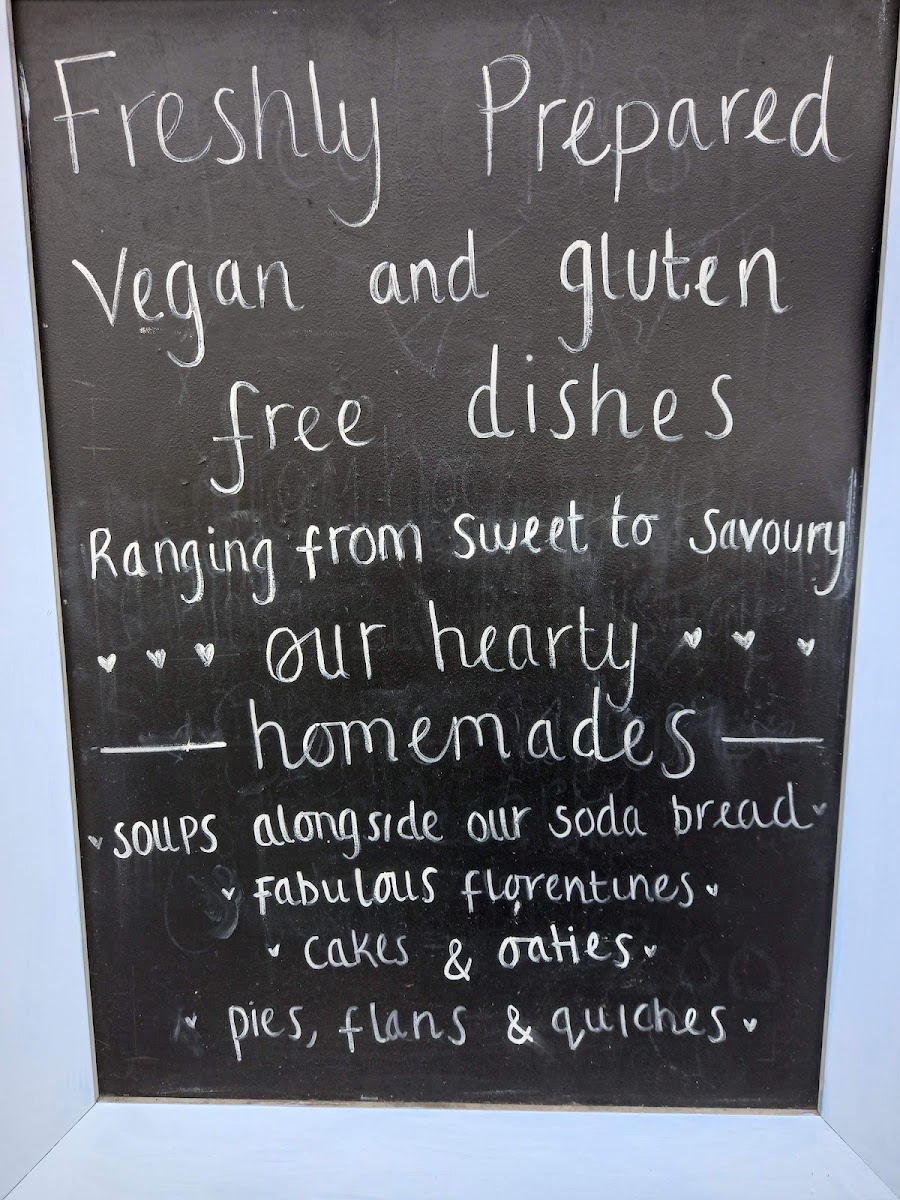 Freshly Prepared
Vegan and gluten
free dishes
Ranging from sweet to savoury
our hearty
homemades
soups alongside our soda bread
Fabulous florentines
cakes & oaties
pies, flans & quiches